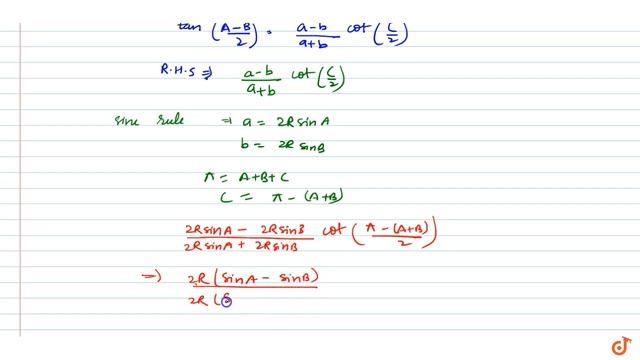 tan (A-B/2) = a-b/a+b cot (C/2)
R.H.S ⇒ a-b/a+b cot (C/2)
sine rule ⇒ a = 2R sinA
b = 2R sinB
π = A+B+C
C = π - (A+B)
2R sinA - 2R sinB / 2R sinA + 2R sinB cot (π - (A+B)/2)
⇒ 2R (sinA - sinB) / 2R (S